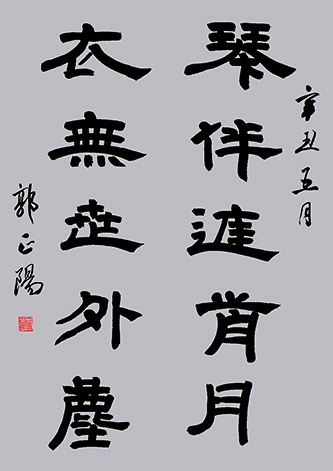 辛丑五月
琴伴月
衣無世外塵
郭正陽